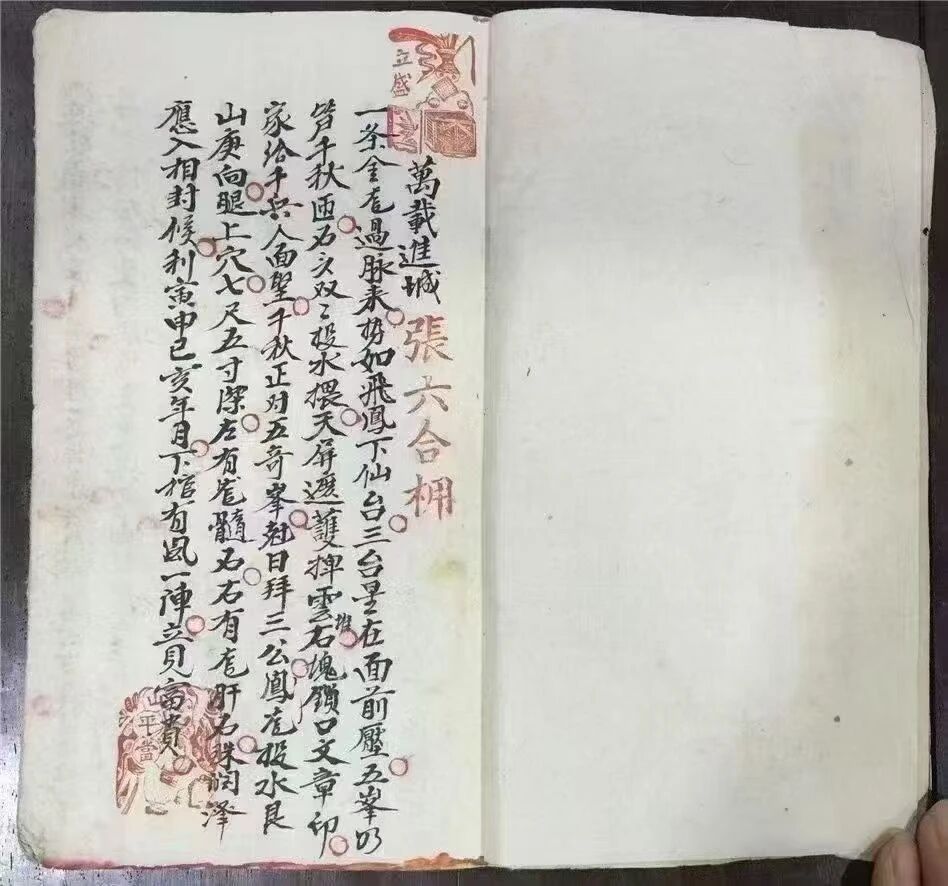 立盛
萬載進城 張六合柙
一条金龙過脉来势如飛鳳下仙台三台星在面前壓五峯乃
笋千秋西石文双〻投水攔天屏遮護雙押雲堆石塊鎖口文章印
家给千兵人面堅千秋正对五奇峯尅日拜三公鳳龙投水艮
山庚向腿上穴七尺五寸深左有龙髓石右有龙肝石珠润泽
應入相封候利寅申巳亥年月下棺有風一陣立見富貴
平當